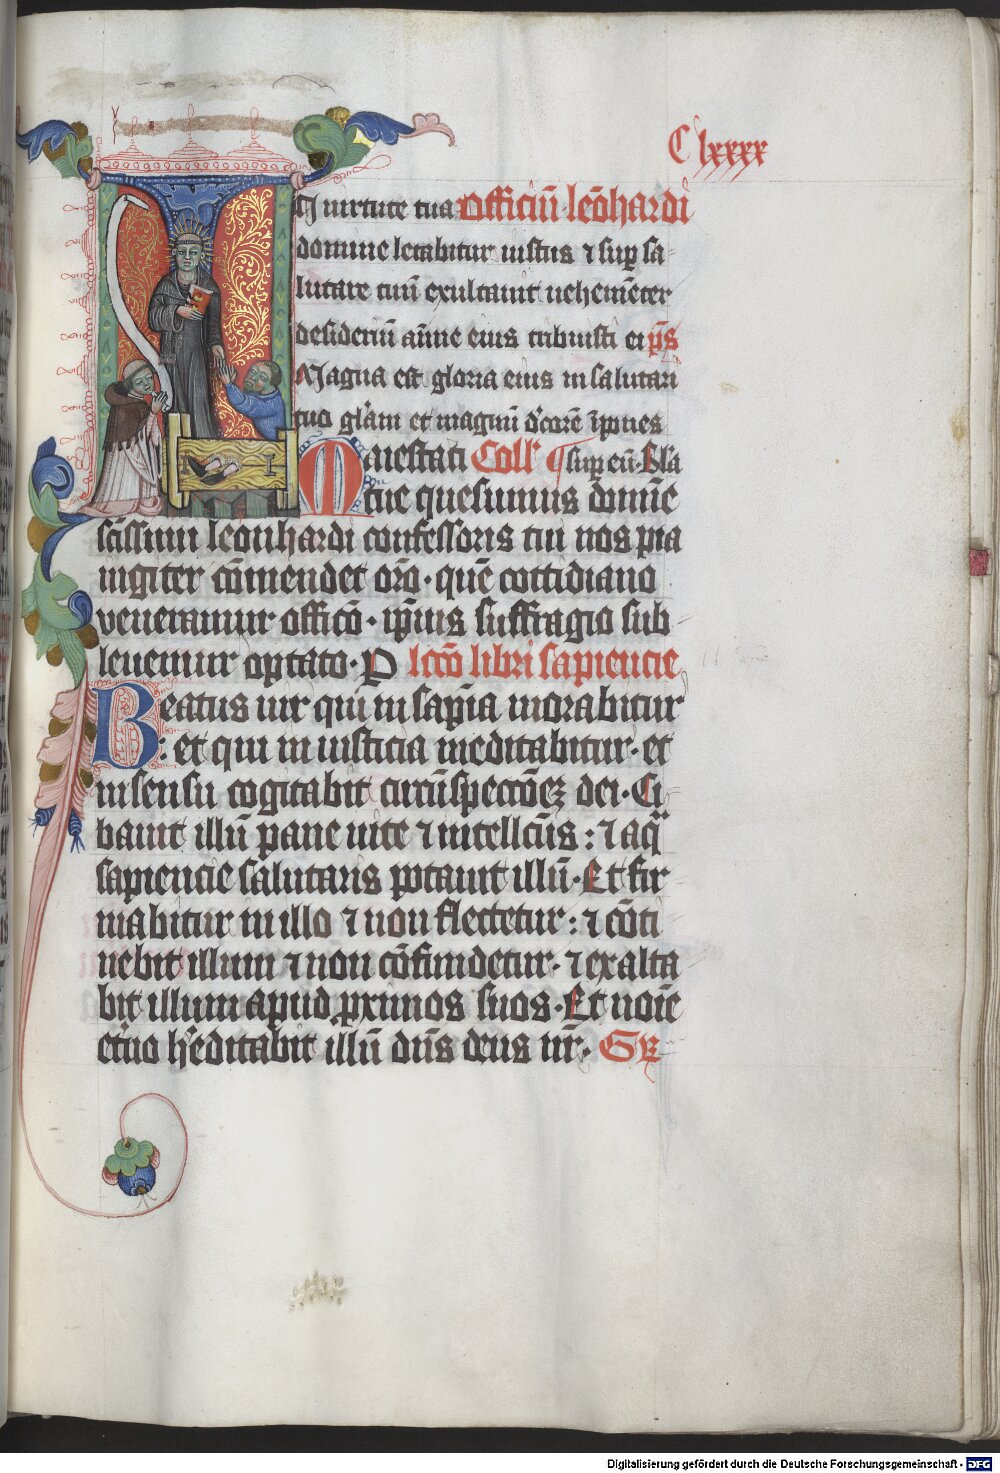 C lxxxx
IN uirtute tua Officiū leōhardi
domine letabitur iustus ⁊ suꝑ sa-
lutare tuū exultauit uehemēter
desideriū aīme eius tribuisti ei p̄s
Magna est gloria eius in salutari
tuo gl'am et magnū d'corē īpones
Maiestati Coll' suꝑ eū. Bl'a
tue quesumus domīe
sc̄issimi leonhardi confessoris tui nos pia
iugiter cōmendet or̄o · quē cottidiano
ueneramur offic̄o · ip̄ius suffragio sub
leuemur optato · P lcc̄o libri sapiencie
Beatus uir qui in sapīa morabitur
: et qui in iusticia meditabitur · et
in sensu cogitabit circūspecc̄oēz dei · Ci
bauit illū pane uite ⁊ intellc̄us : ⁊ aq̄
sapiencie salutaris potauit illū · Et fir
mabitur in illo ⁊ non flectetur : ⁊ cōti
nebit illum ⁊ non cōfundetur · ⁊ exalta
bit illum apud ꝓximos suos · Et noīe
et'no h'editabit illū dn̄s deus nr̄ · Gr̄
Digitalisierung gefördert durch die Deutsche Forschungsgemeinschaft - DFG